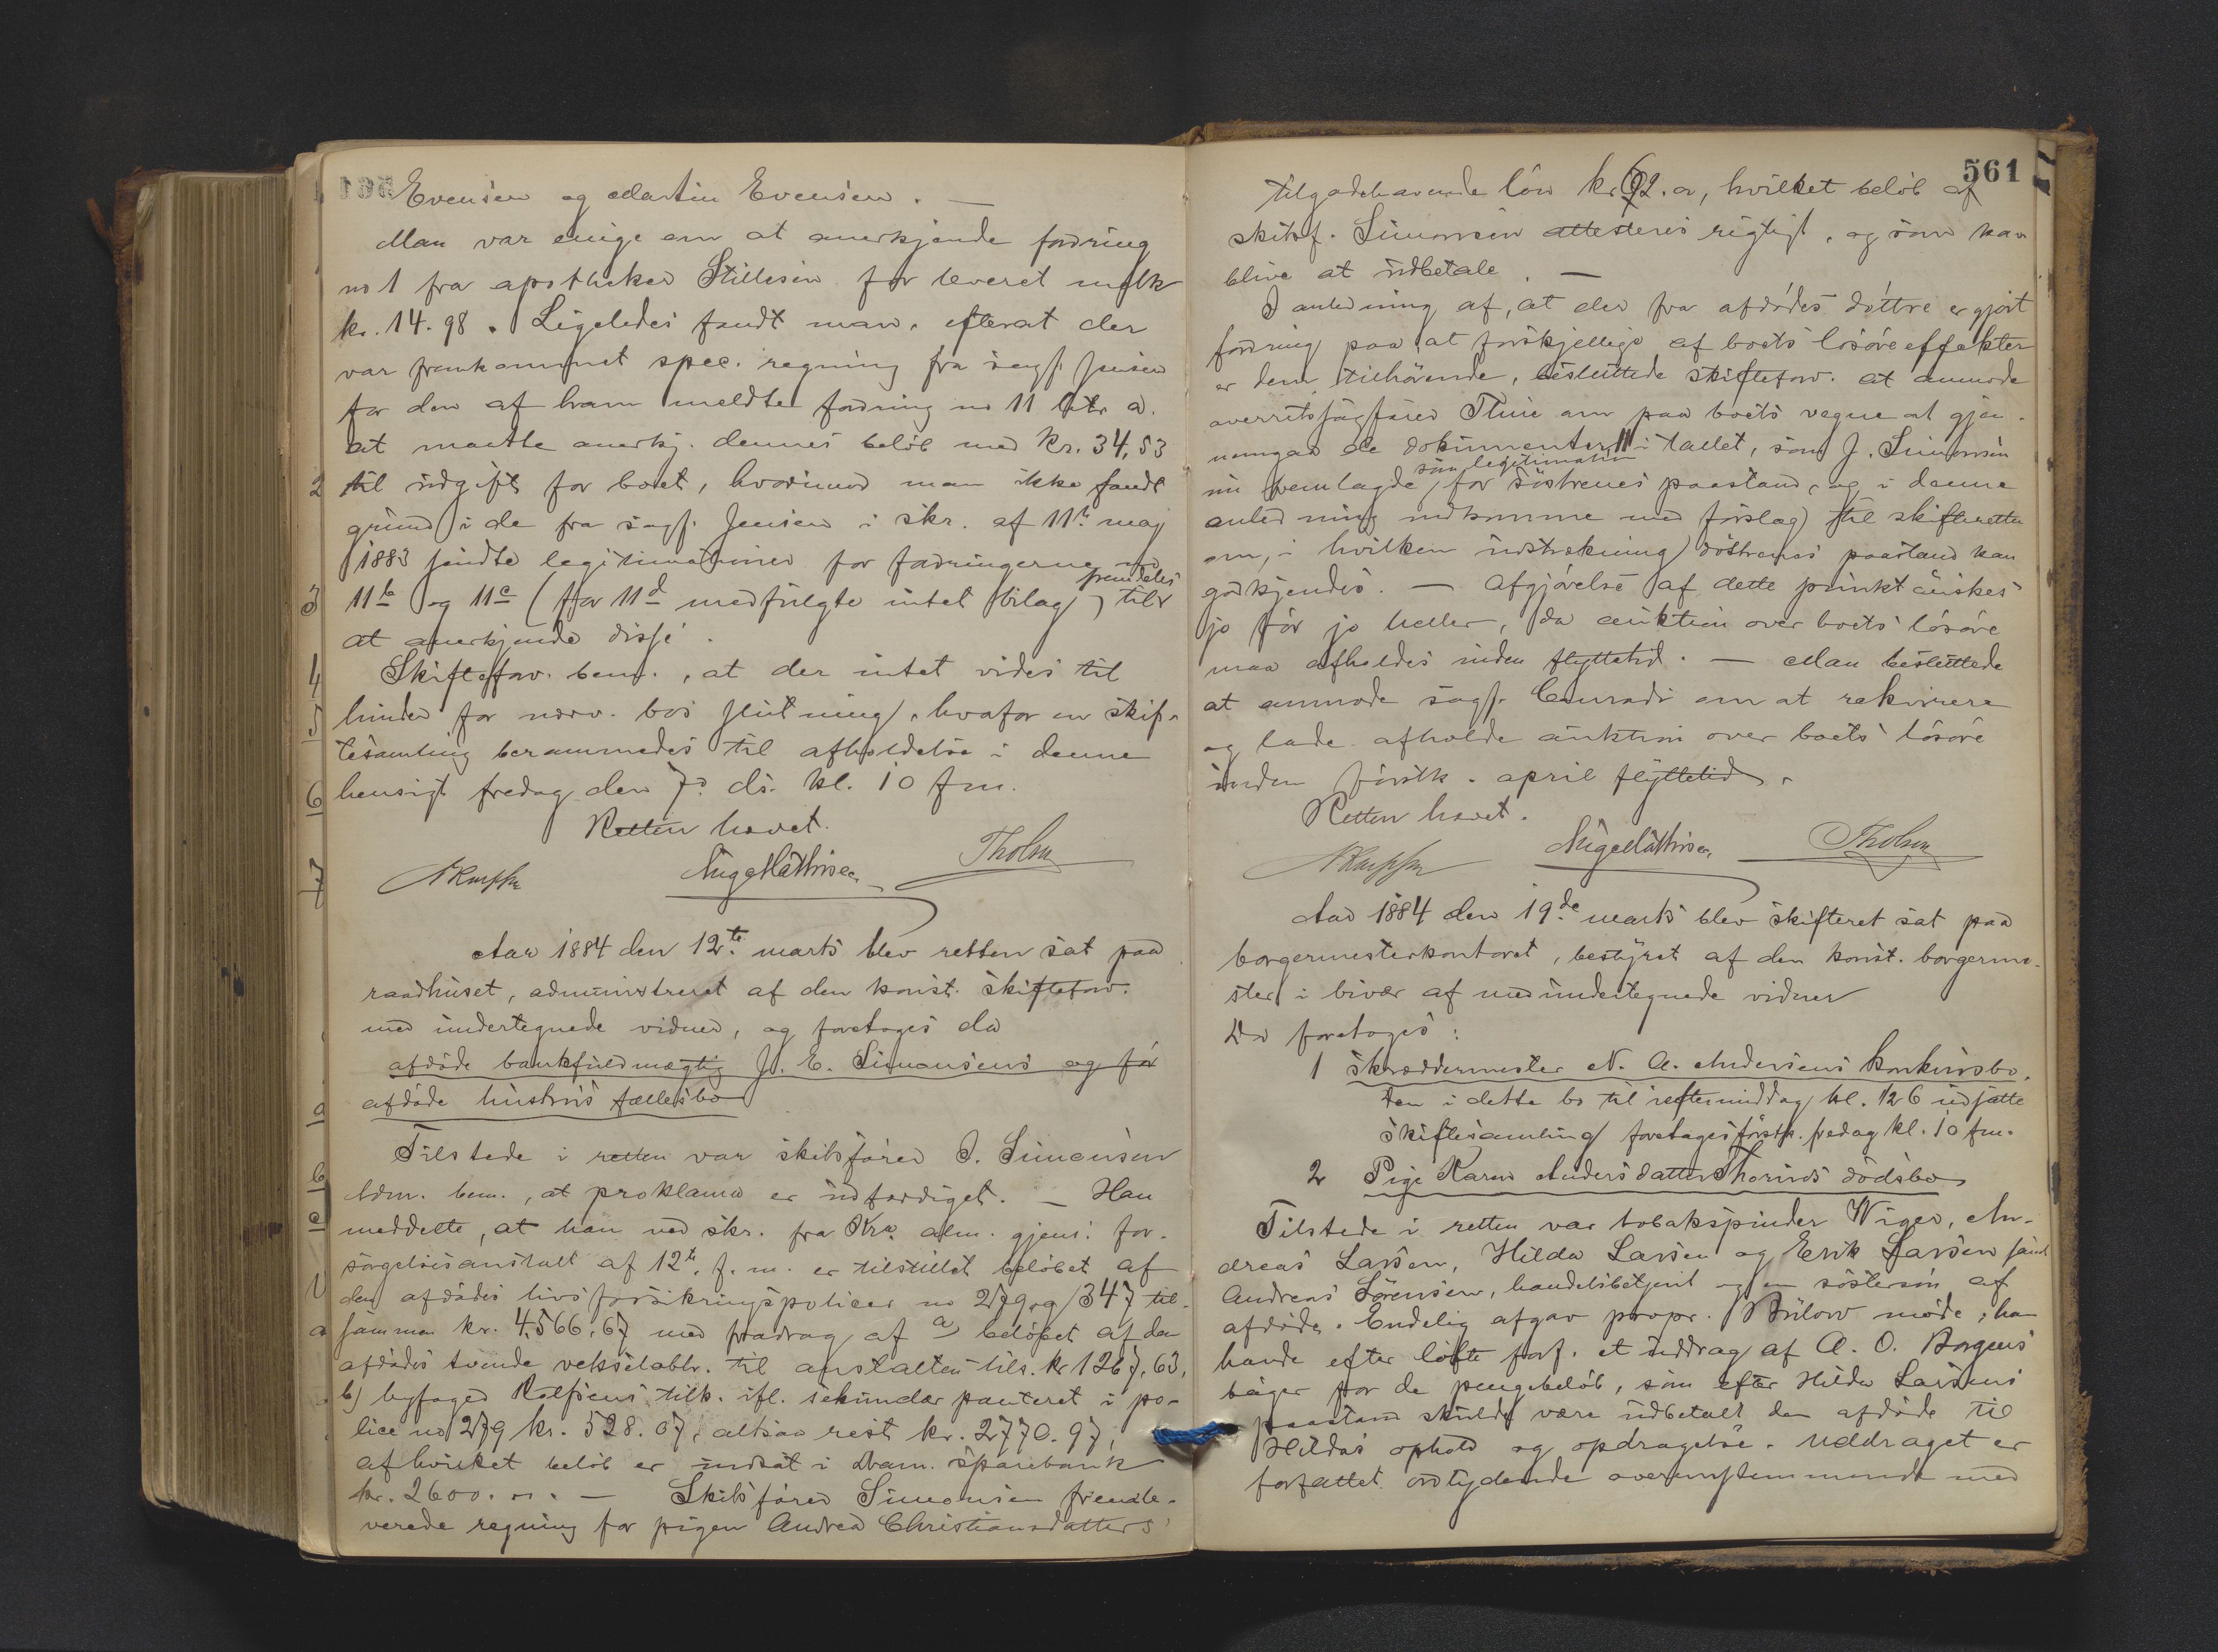 Evensen og Martin Evensen. —
Man var enige om at anerkjende fordring
no 1 fra apotheker Stillesen for leveret melk
kr. 14.98. Ligeledes fandt man, efterat der
var fremkommet spec. regning fra sagf. Jensen
for den af ham meldte fordring no 11 litr a.
at maatte anerkj. dennes beløb med kr. 34,53
til udgift for boet, hvorimod man ikke fandt
grund i de fra sagf. Jensen i skr. af 11te maj
1883 sendte legitimationer for fordringerne no
11b og 11c (for 11d medfulgte intet bilag) fremdeles til
at anerkjende disse.
Skifteforv. bem., at der intet vides til
hinder for nærv. bos slutning, hvorfor en skif-
tesamling berammedes til afholdelse i denne
hensigt fredag den 7de ds. kl. 10 fm.
Retten hævet.
Aage Mathisen
Tholsen
Aar 1884 den 12te marts blev retten sat paa
raadhuset, administreret af den konst. skifteforv.
med undertegnede vidner, og foretoges da
afdøde bankfuldmægtig J. E. Simonsens og før
afdøde hustrus fællesbo
Tilstede i retten var skibsfører J. Simonsen
Adm. bem., at proklama er udfærdiget. — Han
meddelte, at han ved skr. fra Kra. alm. gjens. for-
sørgelsesanstalt af 12te f. m. er tilstillet beløbet af
den afdødes livsforsikringspolicer no 279 og 347 til-
sammen kr. 4,566.67 med fradrag af a) beløbet af den
afdødes tvende vekselobl. til anstalten tils. kr 1267.63,
b) byfoged Rolfsens tilk. ifl. sekundær panteret i po-
lice no 279 kr. 528.07, altsaa rest kr. 2770.97,
af hvilket beløb er indsat i Dram. sparebank
kr. 2600. — Skibsfører Simonsen fremle-
verede regning for pigen Andrea Christiansdatters
561
tilgodehavende løn kr. 62., hvilket beløb af
skibsf. Simonsen attesteres rigtigt, og som kan
blive at udbetale. —
I anledning af, at der fra afdødes døttre er gjort
fordring paa, at forskjellige af boets løsøreeffekter
er dem tilhørende, besluttede skifteforv. at anmode
overretssagfører Thue om paa boets vegne at gjen-
nemgaa de dokumenter 11 i tallet, som J. Simonsen
nu fremlagde som legitimation for søstrenes paastand, og i denne
anledning indkomme med forslag til skifteretten
om, i hvilken udstrækning søstrenes paastand kan
godkjendes. — Afgjørelse af dette punkt ønskes
jo før jo heller, da auktion over boets løsøre
maa afholdes inden flyttetid. — Man besluttede
at anmode sagf. Conradi om at rekvirere
og lade afholde auktion over boets løsøre
inden førstk. april flyttetid.
Retten hævet.
Aage Mathisen
Tholsen
Aar 1884 den 19de marts blev skifteret sat paa
borgermesterkontoret, bestyret af den konst. borgerme-
ster i bivær af medundertegnede vidner
Da foretoges:
1 Skræddermester N. A. Andersens konkursbo.
Den i dette bo til i eftermiddag kl. 6 udsatte
skiftesamling foretages førstk. fredag kl. 10 fm.
2 Pige Karen Andersdatter Thoruds dødsbo
Tilstede i retten var tobakspinder Wiger, An-
dreas Larsen, Hilda Larsen og Erik Larsen samt
Andreas Sørensen, handelsbetjent og en søstersøn af
afdøde. Endelig afgav propr. Bülow møde; han
havde efter løfte forf. et uddrag af A. O. Borgens
bøger for de pengebeløb, som efter Hilda Larsens
paastand skulde være udbetalt den afdøde til
Hildas ophold og opdragelse. Uddraget er
forfattet ordlydende overensstemmende med